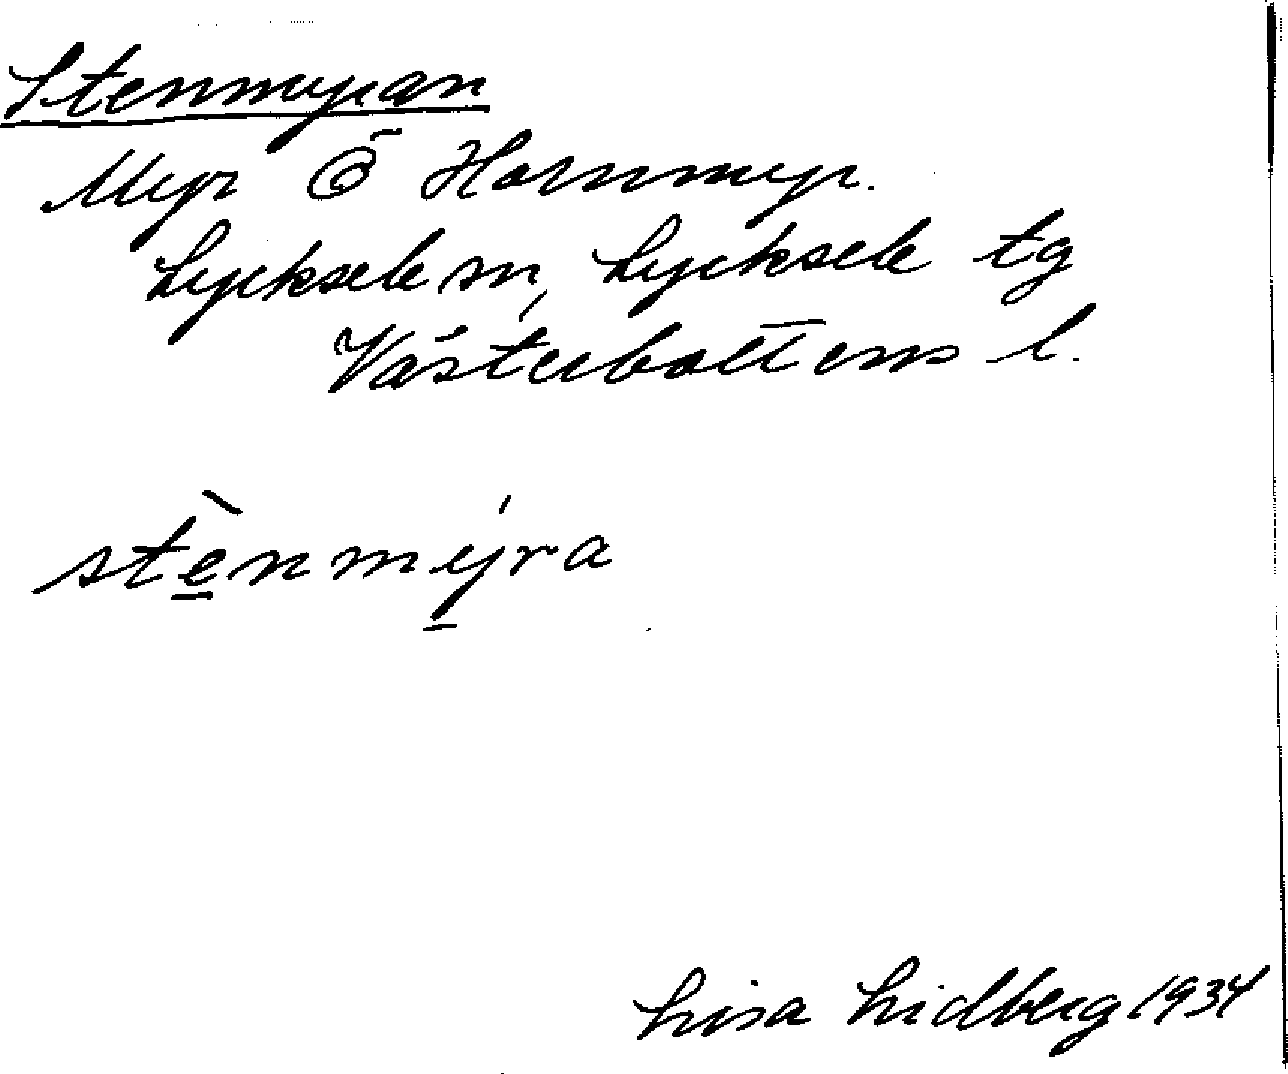 Stenmyran
Myr Ö Hornmyr.
Lycksele sn, Lycksele tg
Västerbottens l.
stè̱nmý̱ra
Lisa Lidberg 1934